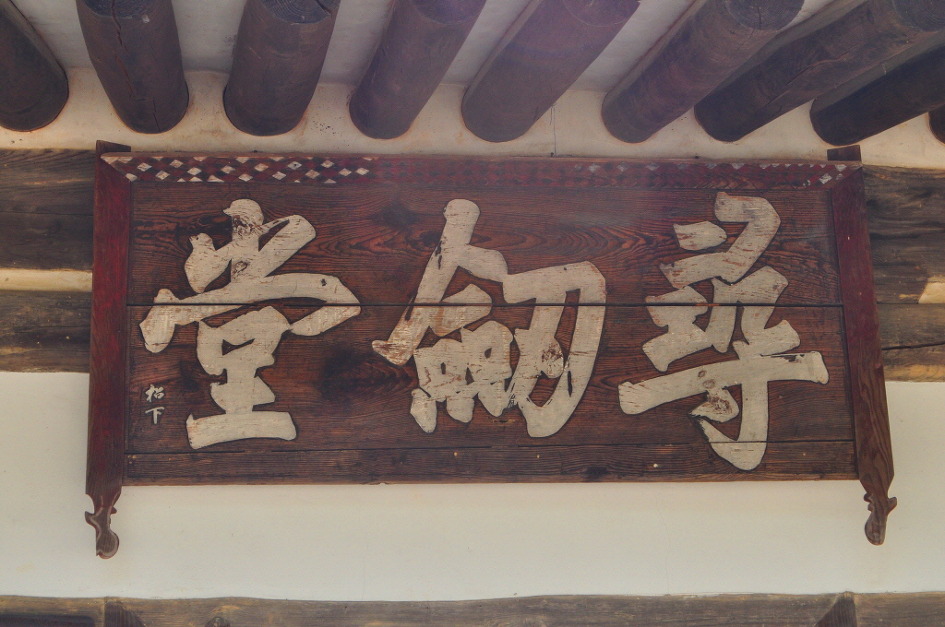 尋劒堂
松下